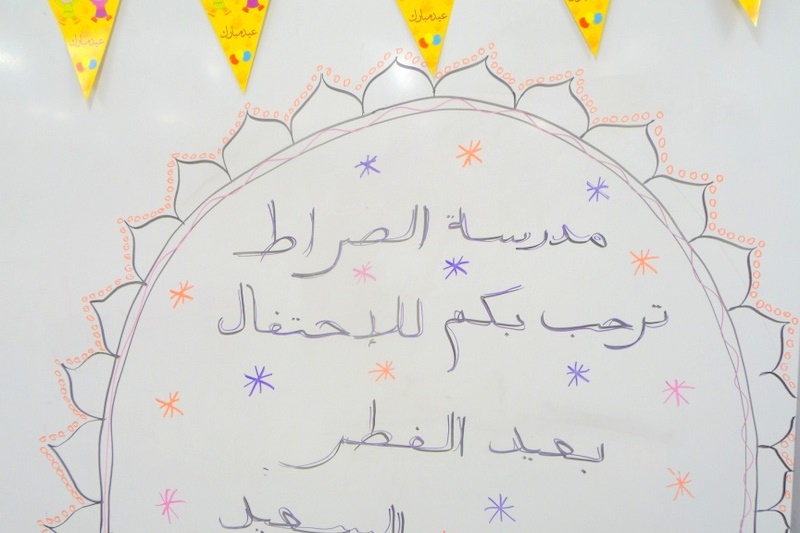 عيد مبارك
عيد مبارك
عيد مبارك
مدرسة الصراط
ترحب بكم للإحتفال
بعيد الفطر
السعيد